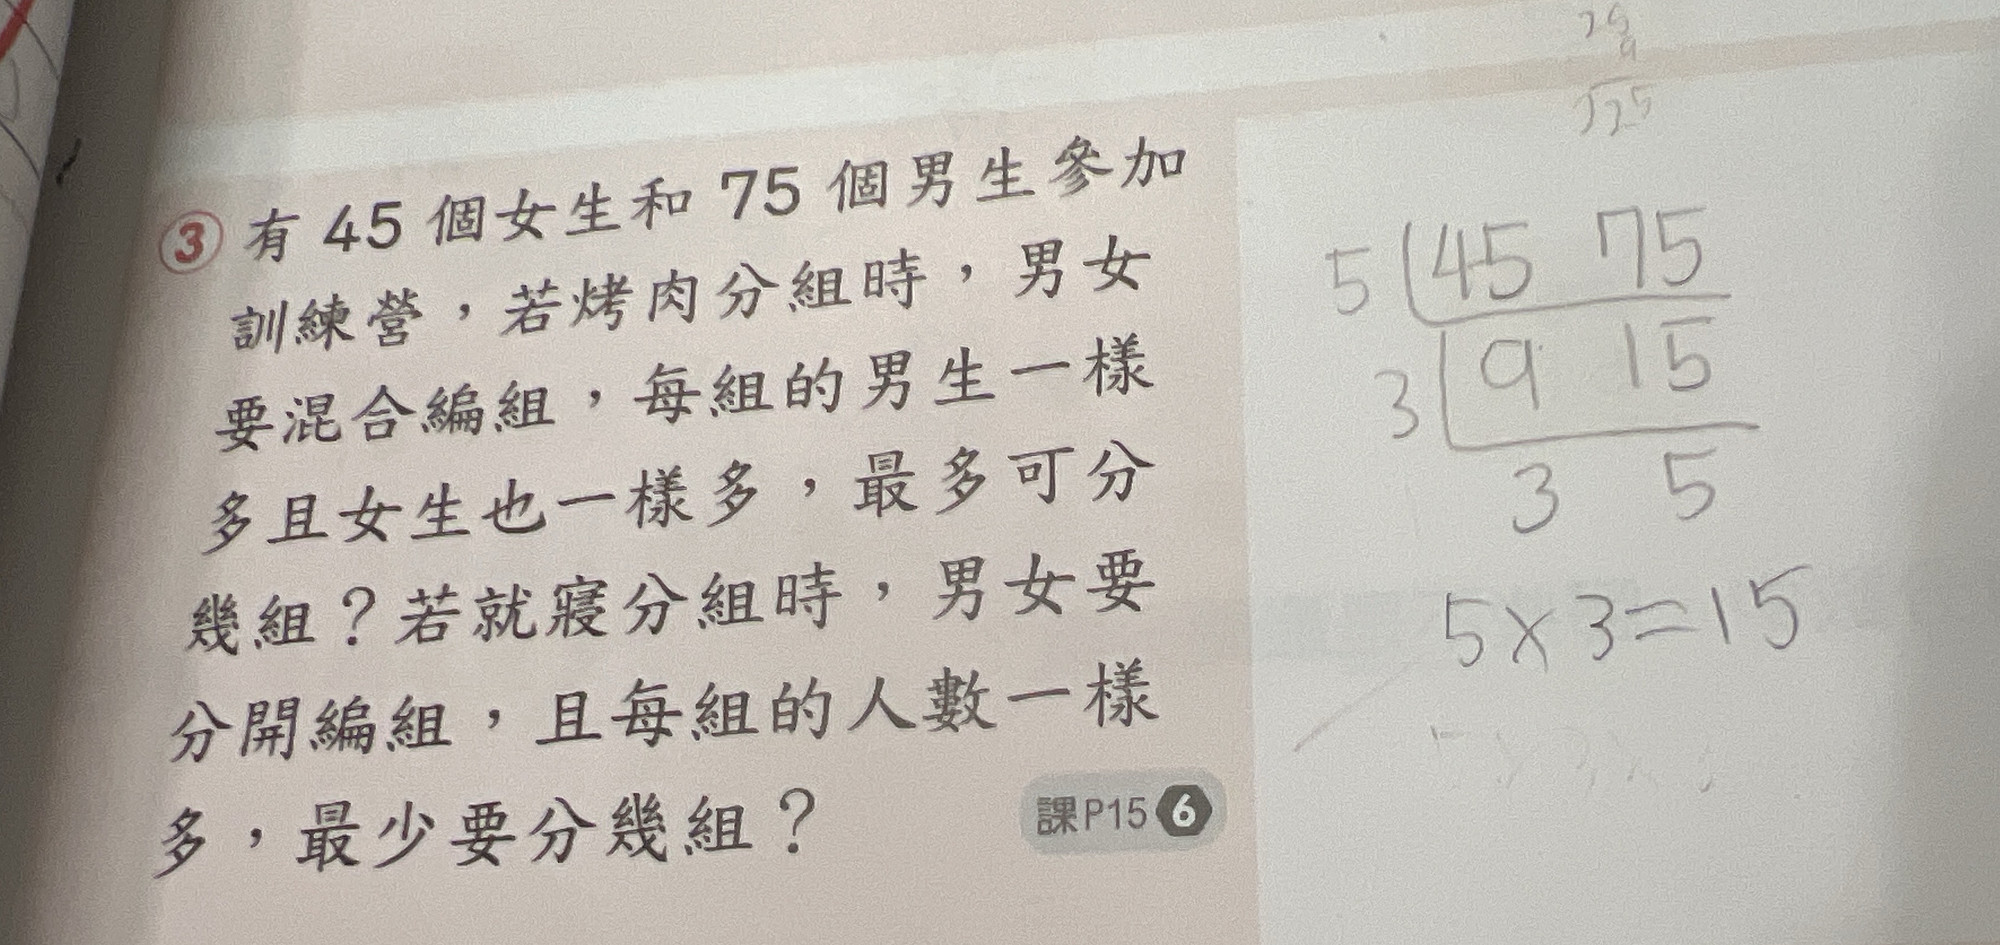 ③ 有 45 個女生和 75 個男生參加
訓練營，若烤肉分組時，男女
要混合編組，每組的男生一樣
多且女生也一樣多，最多可分
幾組？若就寢分組時，男女要
分開編組，且每組的人數一樣
多，最少要分幾組？
課P15 6
5 45 75
3 9 15
3 5
5×3=15